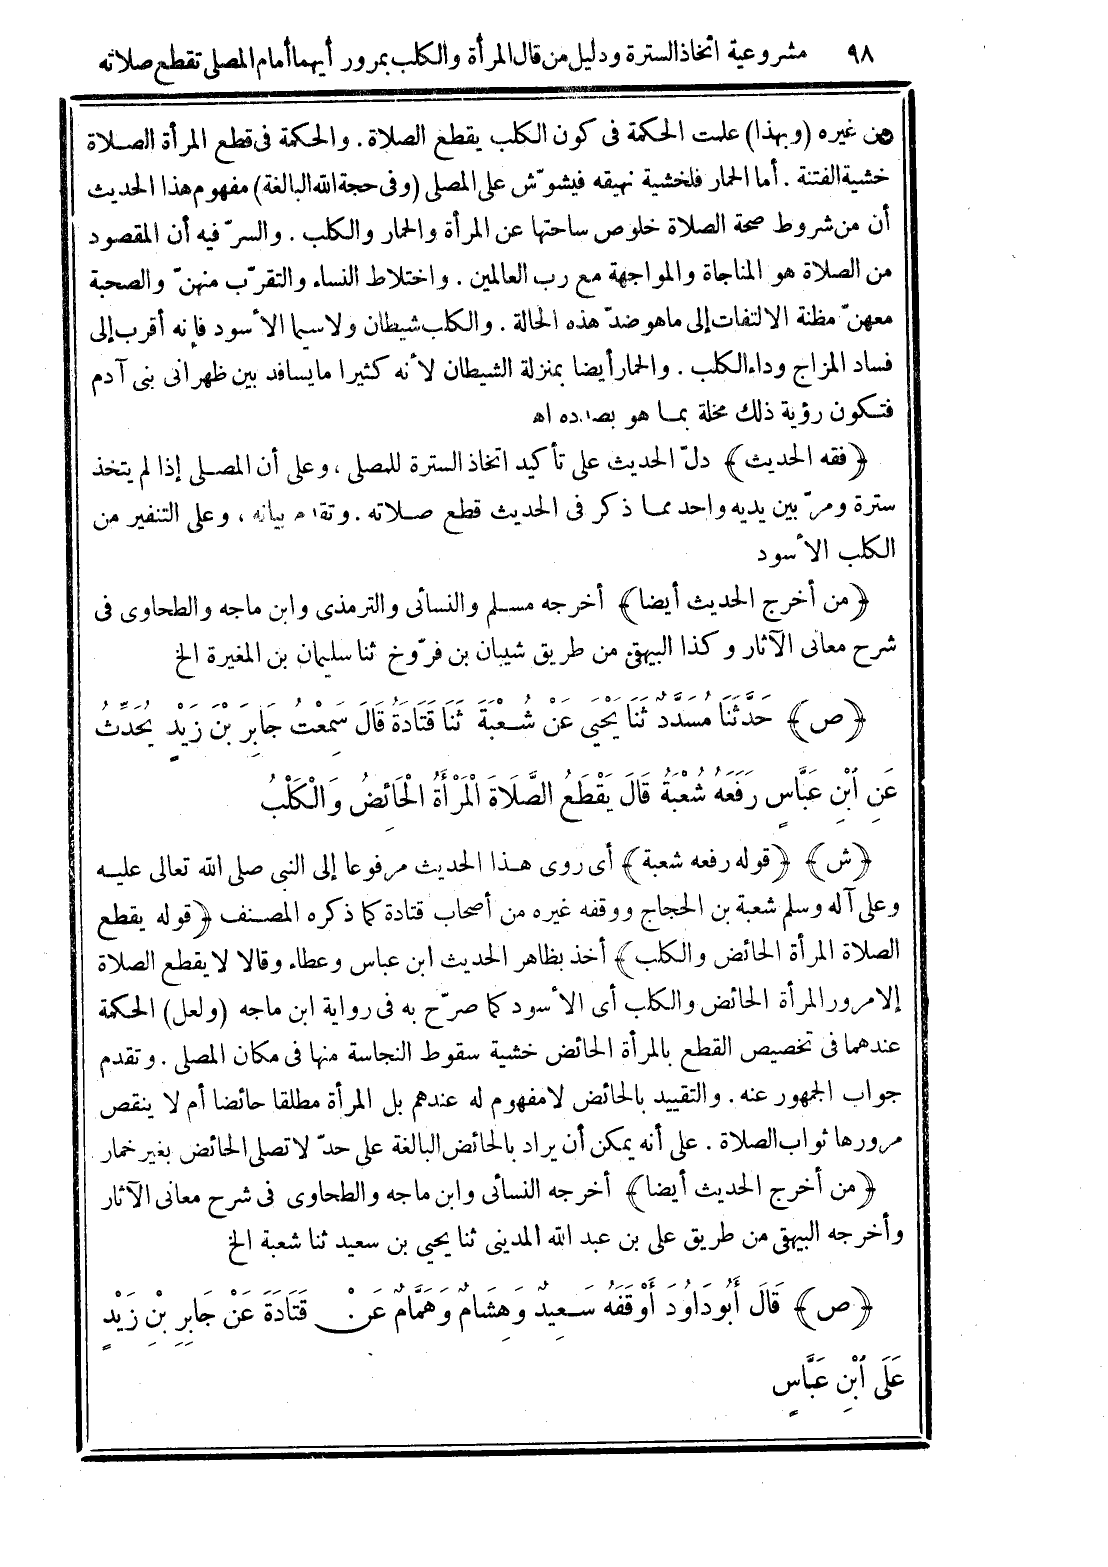 ٩٨ مشروعية اتخاذ السترة ودليل من قال المرأة والكلب بمرور أيهما أمام المصلى تقطع صلاته
من غيره (وبهذا) علمت الحكمة فى كون الكلب يقطع الصلاة. والحكمة فى قطع المرأة الصلاة
خشية الفتنة. أما الحمار فلخشية نهيقه فيشوّش على المصلى (وفى حجة الله البالغة) مفهوم هذا الحديث
أن من شروط صحة الصلاة خلوص ساحتها عن المرأة والحمار والكلب. والسرّ فيه أن المقصود
من الصلاة هو المناجاة والمواجهة مع رب العالمين. واختلاط النساء والتقرّب منهنّ والصحبة
معهنّ مظنة الالتفات إلى ماهو ضدّ هذه الحالة. والكلب شيطان ولاسيما الأسود فإنه أقرب إلى
فساد المزاج وداء الكلب. والحمار أيضا بمنزلة الشيطان لأنه كثيرا ما يسافد بين ظهرانى بنى آدم
فتكون رؤية ذلك مخلة بما هو بصدده اه
﴿فقه الحديث﴾ دلّ الحديث على تأكيد اتخاذ السترة للمصلى، وعلى أن المصلى إذا لم يتخذ
سترة ومرّ بين يديه واحد مما ذكر فى الحديث قطع صلاته. وتقدم بيانه، وعلى التنفير من
الكلب الأسود
﴿من أخرج الحديث أيضا﴾ أخرجه مسلم والنسائى والترمذى وابن ماجه والطحاوى فى
شرح معانى الآثار وكذا البيهقى من طريق شيبان بن فرّوخ ثنا سليمان بن المغيرة الخ
﴿ص﴾ حَدَّثَنَا مُسَدَّدٌ ثَنَا يَحْيَى عَنْ شُعْبَةَ ثَنَا قَتَادَةُ قَالَ سَمِعْتُ جَابِرَ بْنَ زَيْدٍ يُحَدِّثُ
عَنِ ابْنِ عَبَّاسٍ رَفَعَهُ شُعْبَةُ قَالَ يَقْطَعُ الصَّلَاةَ الْمَرْأَةُ الْحَائِضُ وَالْكَلْبُ
﴿ش﴾ ﴿قوله رفعه شعبة﴾ أى روى هذا الحديث مرفوعا إلى النبى صلى الله تعالى عليه
وعلى آله وسلم شعبة بن الحجاج ووقفه غيره من أصحاب قتادة كما ذكره المصنف ﴿قوله يقطع
الصلاة المرأة الحائض والكلب﴾ أخذ بظاهر الحديث ابن عباس وعطاء وقالا لا يقطع الصلاة
إلا مرور المرأة الحائض والكلب أى الأسود كما صرّح به فى رواية ابن ماجه (ولعل) الحكمة
عندهما فى تخصيص القطع بالمرأة الحائض خشية سقوط النجاسة منها فى مكان المصلى. وتقدم
جواب الجمهور عنه. والتقييد بالحائض لا مفهوم له عندهم بل المرأة مطلقا حائضا أم لا ينقص
مرورها ثواب الصلاة. على أنه يمكن أن يراد بالحائض البالغة على حدّ لا تصلى الحائض بغير خمار
﴿من أخرج الحديث أيضا﴾ أخرجه النسائى وابن ماجه والطحاوى فى شرح معانى الآثار
وأخرجه البيهقى من طريق على بن عبد الله المدينى ثنا يحيى بن سعيد ثنا شعبة الخ
﴿ص﴾ قَالَ أَبُو دَاوُدَ أَوْقَفَهُ سَعِيدٌ وَهِشَامٌ وَهَمَّامٌ عَنْ قَتَادَةَ عَنْ جَابِرِ بْنِ زَيْدٍ
عَلَى ابْنِ عَبَّاسٍ